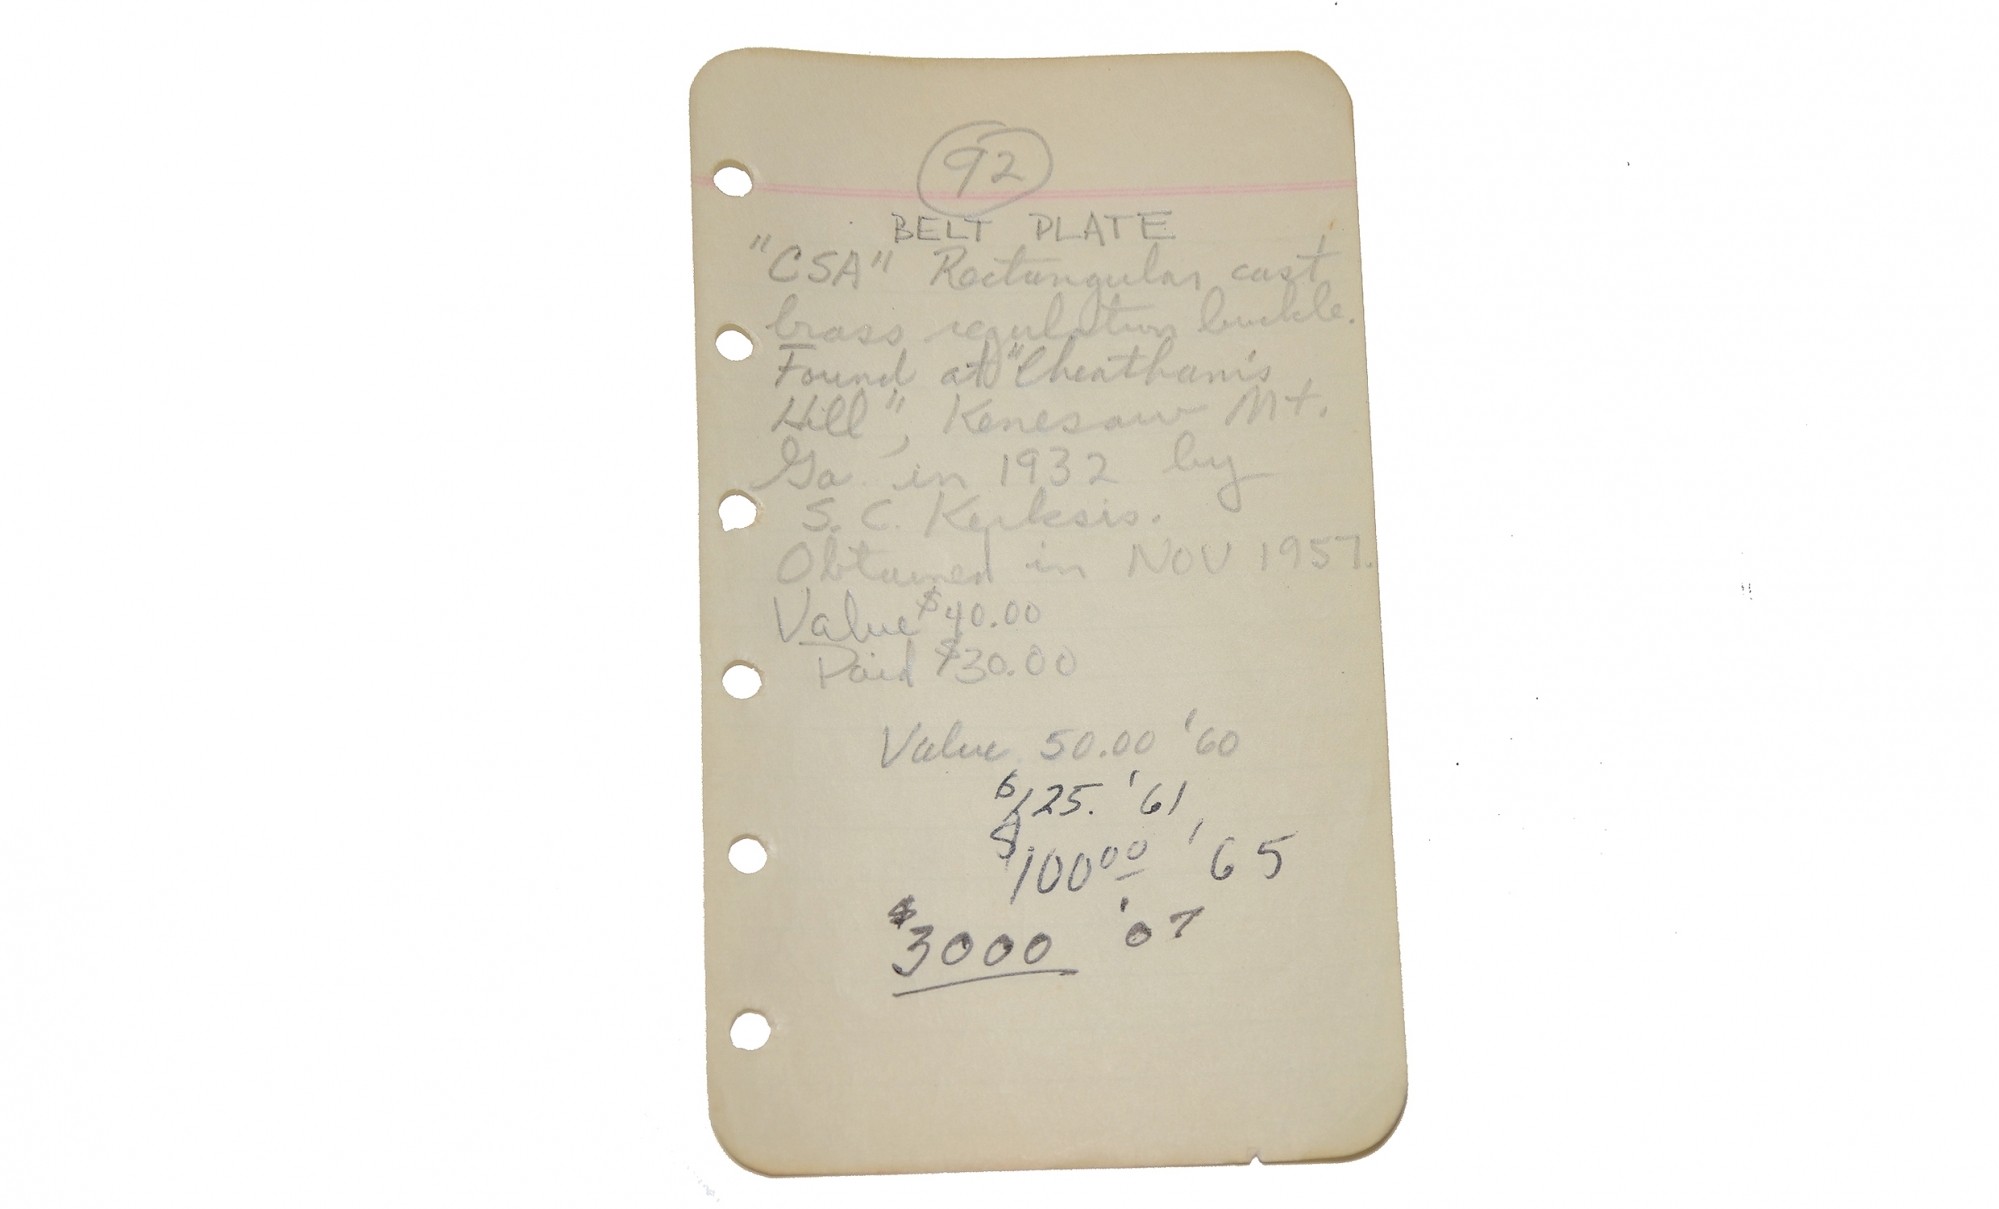 92
BELT PLATE
"CSA" Rectangular cast
brass regulation buckle.
Found at "Cheatham's
Hill", Kenesaw Mt.
Ga. in 1932 by
S. C. Kerksis.
Obtained in NOV 1957.
Value $40.00
Paid $30.00
Value 50.00 '60
$125. '61
$100.00 '65
$3000 '07